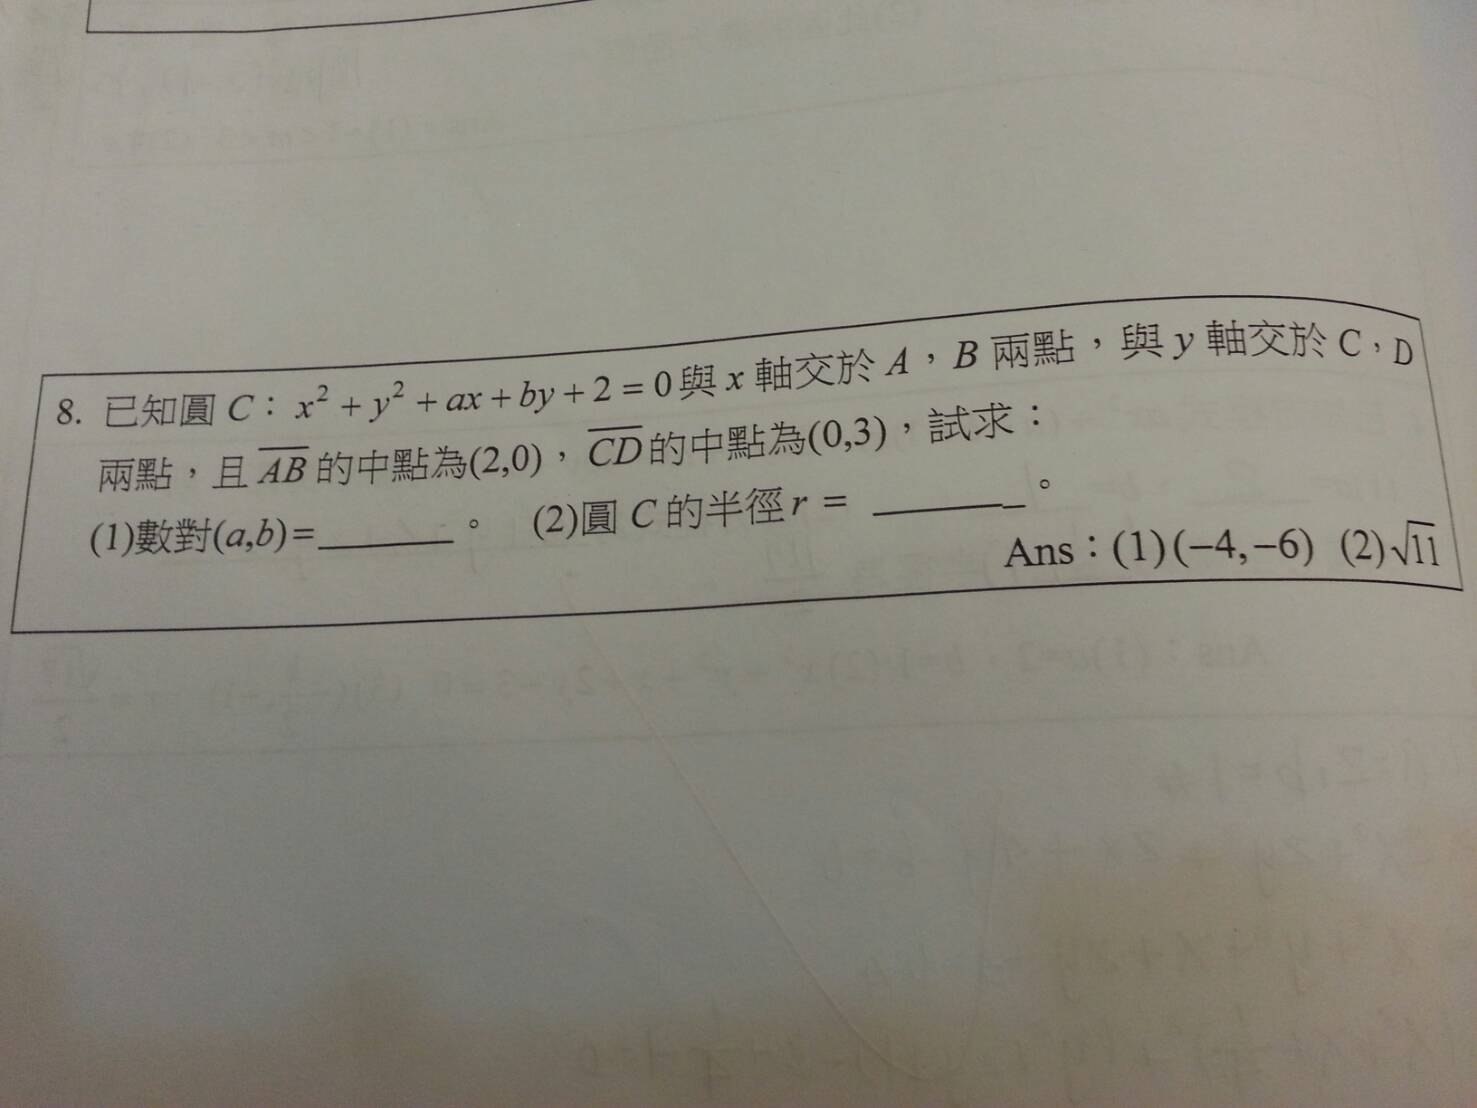 8. 已知圓 C：x² + y² + ax + by + 2 = 0 與 x 軸交於 A，B 兩點，與 y 軸交於 C，D
兩點，且 A̅B̅ 的中點為(2,0)，C̅D̅ 的中點為(0,3)，試求：
(1)數對(a,b)=______。 (2)圓 C 的半徑 r = ______。
Ans：(1)(−4,−6) (2)√11